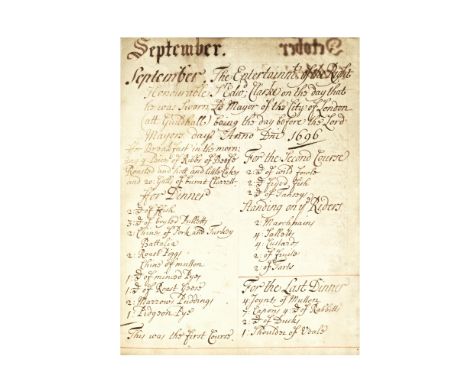 September.
October
September. The Entertainmt. of the Right
Honourable Sr. Edw: Clarke on the day that
he was Sworn Ld Mayor of the City of London
(att Guildhall) being the day before the Lord
Mayors day Anno Dni 1696
for Breakfast in the morn:
Ribbs of Beefe
Roasted and hott and little Cakes
and 20: Galls of burnt Clarett
ffor Dinner
2: Ds of ffish
3: Ds of boyled Pulletts
2: Chine of Pork and Turkey
Battalia
2: Roast Piggs
Chine of mutton
1: Ds of minced Pyes
1: Ds of Roast Goose
2: Marrow Puddings
1: Pidgeon Pye
This was the first Course.
For the Second Course
2: Ds of wild fowle
2: Ds of fryed fish
2: Ds of Tansey
Standing on ye Reders
2: Marchpains
4: Sallads
4: Custards
2: of
2: of Tarts
For the Last Dinner
4 Joynts of Mutton
Capons 4: Ds of Rabbitts
2: Ds of Ducks
1: Shoulder of Veale